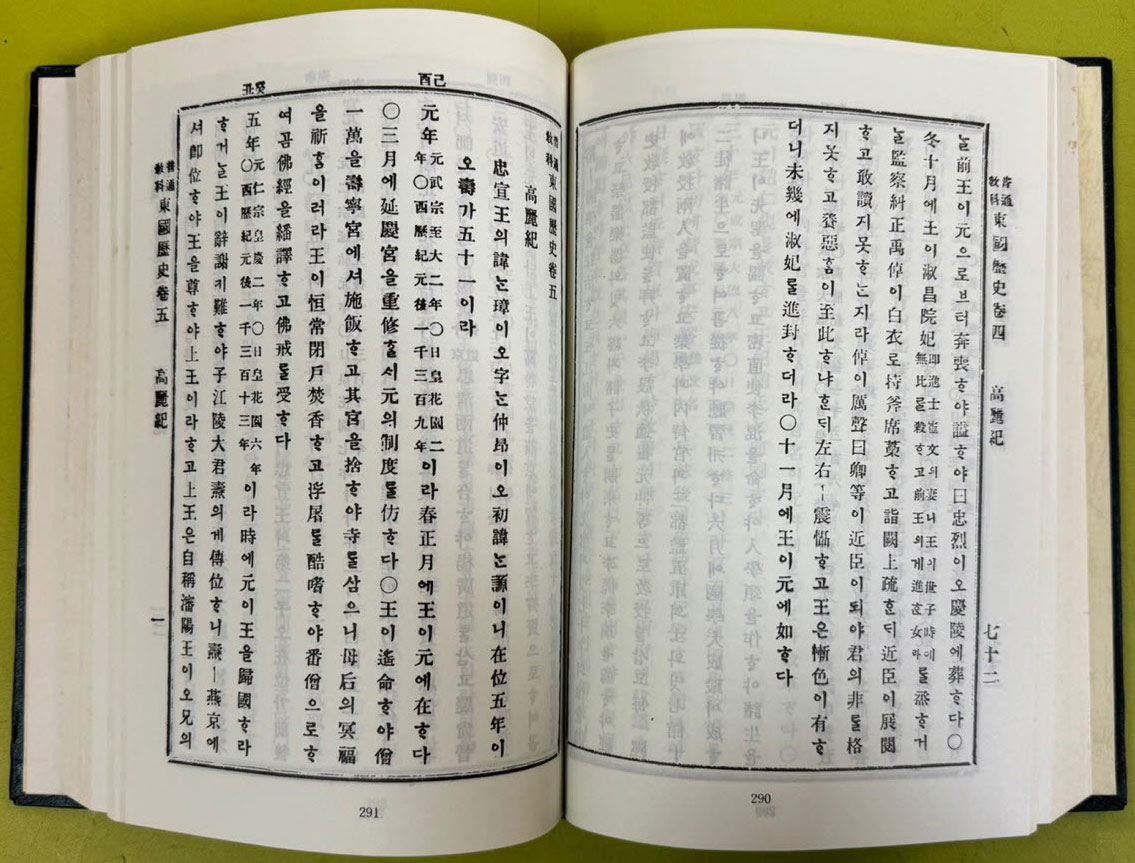 普通敎科 東國歷史卷四 高麗紀 七十二
늘前王이元으로브터奔喪ᄒᆞ야謚ᄒᆞ야曰忠烈이오慶陵에葬ᄒᆞ다○
冬十月에王이淑昌院妃 卽進士崔文의妻니王이世子時에 無比를殺ᄒᆞ고前王의게進ᄒᆞᆫ女라 를烝ᄒᆞ거
늘監察糾正禹倬이白衣로持斧席藁ᄒᆞ고詣闕上疏ᄒᆞᆫ되近臣이展閱
ᄒᆞ고敢讀지못ᄒᆞᄂᆞᆫ지라倬이厲聲曰卿等이近臣이되야君의非를格
지못ᄒᆞ고養惡홈이至此ᄒᆞ냐ᄒᆞᆫ되左右ㅣ震慴ᄒᆞ고王은慚色이有ᄒᆞ
더니未幾에淑妃를進封ᄒᆞ더라○十一月에王이元에如ᄒᆞ다
290
普通敎科東國歷史卷五
高麗紀
忠宣王의諱ᄂᆞᆫ璋이오字ᄂᆞᆫ仲昻이오初諱ᄂᆞᆫ謜이니在位五年이
오壽가五十一이라
己酉
元年 元武宗至大二年○日皇花園二年○西歷紀元後一千三百九年 이라春正月에王이元에在ᄒᆞ다
○三月에延慶宮을重修ᄒᆞᆯ시元의制度를仿ᄒᆞ다○王이遙命ᄒᆞ야僧
一萬을壽寧宮에셔施飯ᄒᆞ고其宮을捨ᄒᆞ야寺를삼으니母后의冥福
을祈홈이러라王이恒常閉戶焚香ᄒᆞ고浮屠를酷嗜ᄒᆞ야番僧으로ᄒᆞ
여곰佛經을繙譯ᄒᆞ고佛戒를受ᄒᆞ다
癸丑
五年 元仁宗皇慶二年○日皇花園六年○西歷紀元後一千三百十三年 이라時에元이王을歸國ᄒᆞ라
ᄒᆞ거늘王이辭謝키難ᄒᆞ야子江陵大君燾의게傳位ᄒᆞ니燾ㅣ燕京에
셔卽位ᄒᆞ야王을尊ᄒᆞ야上王이라ᄒᆞ고上王은自稱瀋陽王이오兄의
普通敎科 東國歷史卷五 高麗紀 一
291